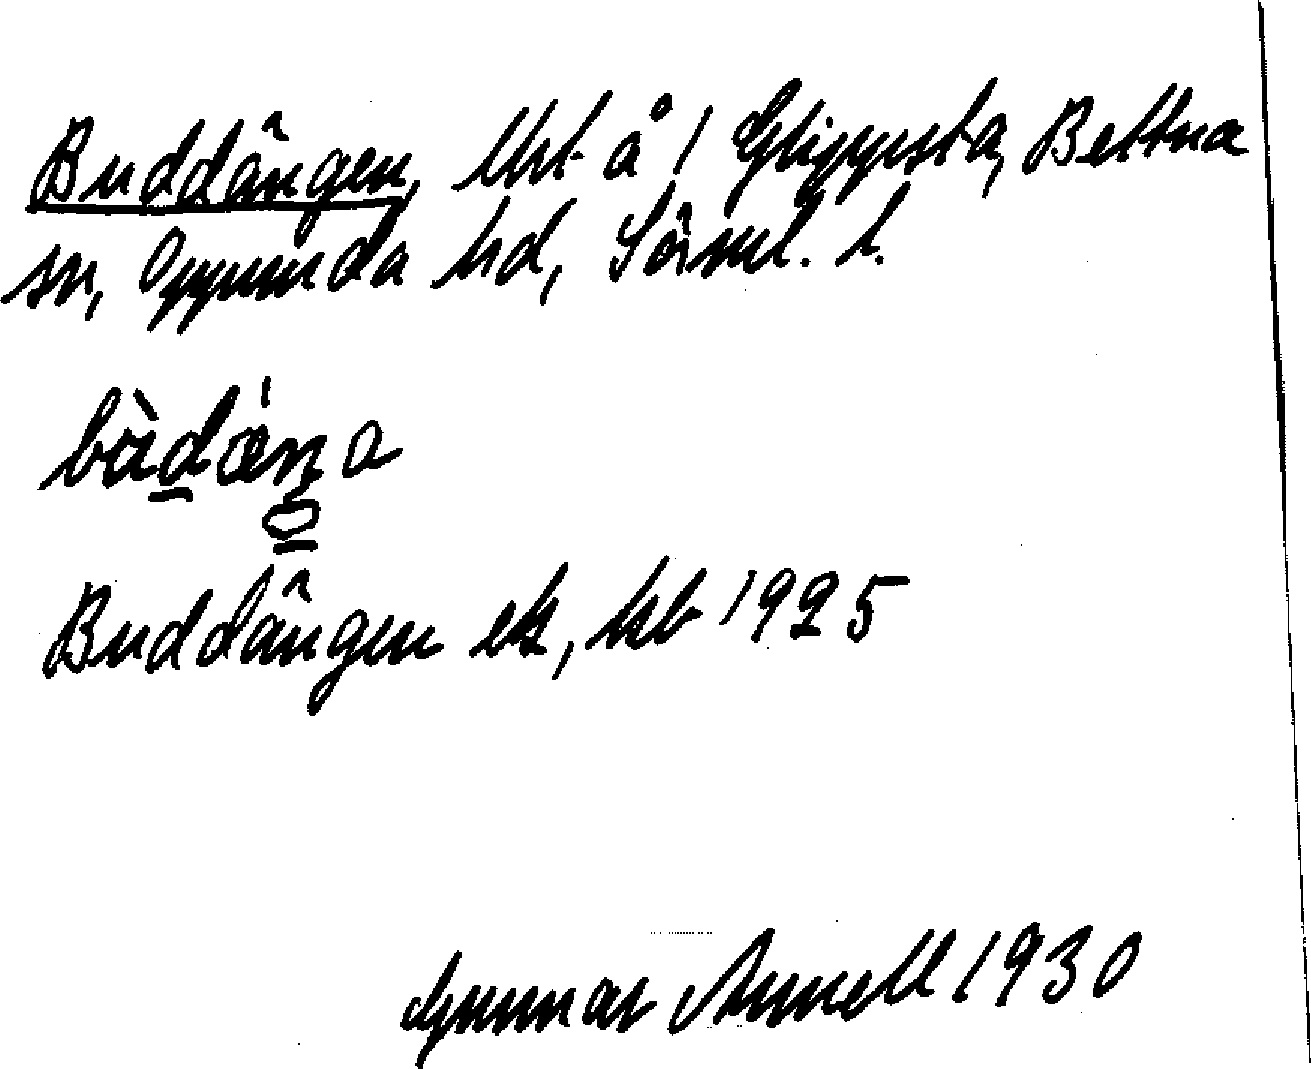 Buddängen, lht å 1 Glippsta, Bettna
sn, Oppunda hd, Sörml. l.
bùdæ̀ŋa
Buddängen ek, kb 1925
Gunnar Annell 1930